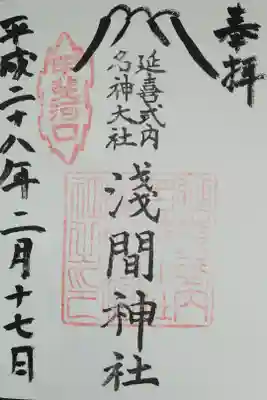 奉拝
延喜式内
名神大社
淺間神社
甲斐河口
平成二十八年二月十七日